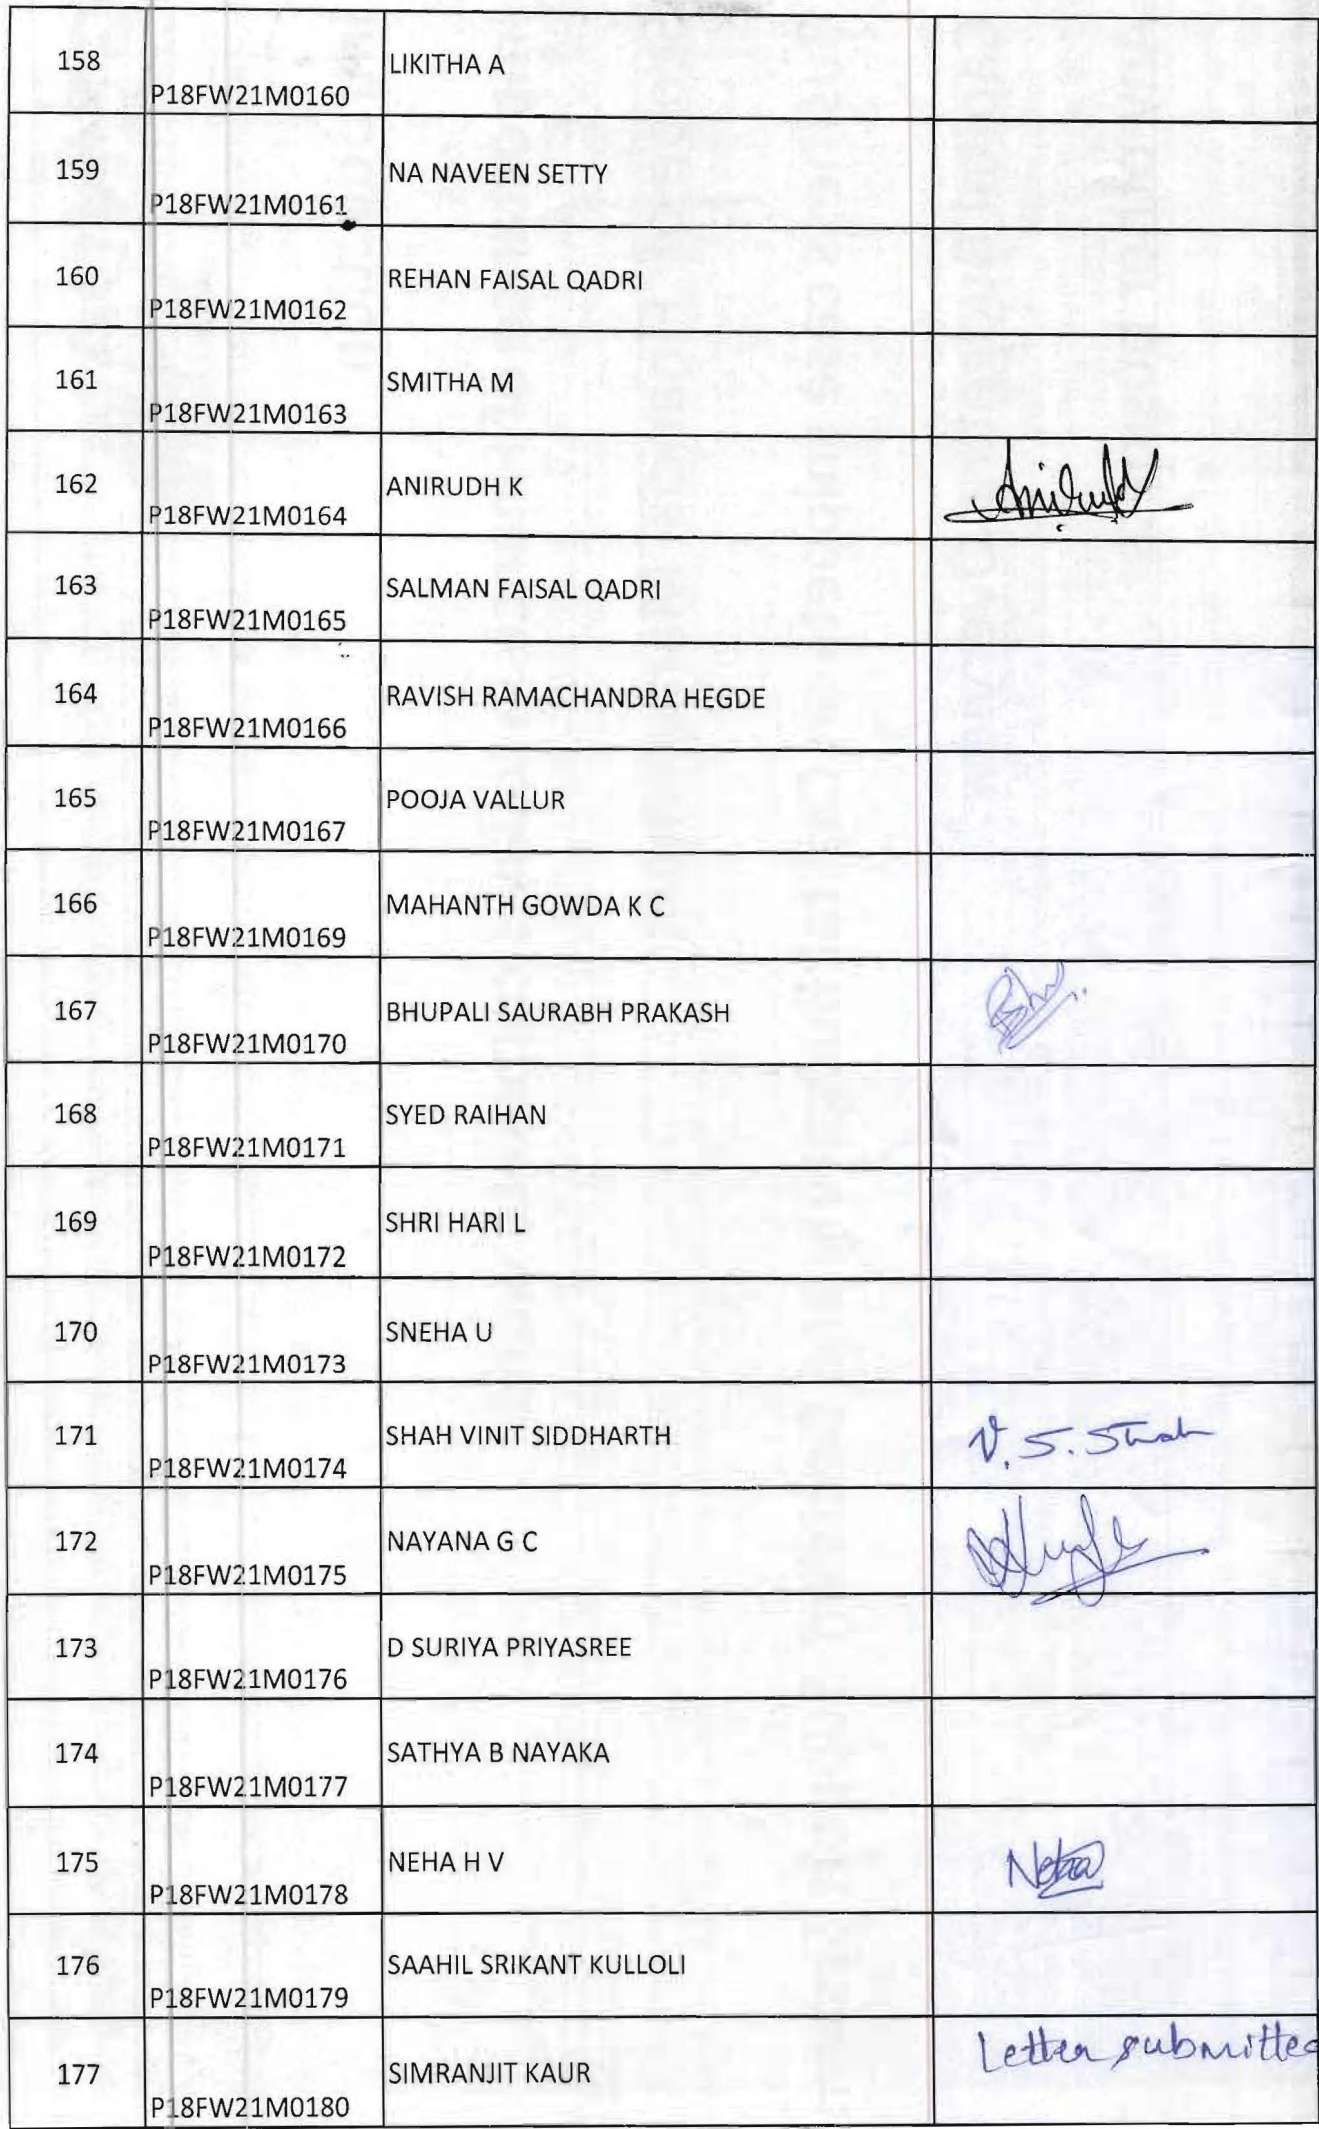 158 P18FW21M0160 LIKITHA A
159 P18FW21M0161 NA NAVEEN SETTY
160 P18FW21M0162 REHAN FAISAL QADRI
161 P18FW21M0163 SMITHA M
162 P18FW21M0164 ANIRUDH K Anirudh
163 P18FW21M0165 SALMAN FAISAL QADRI
164 P18FW21M0166 RAVISH RAMACHANDRA HEGDE
165 P18FW21M0167 POOJA VALLUR
166 P18FW21M0169 MAHANTH GOWDA K C
167 P18FW21M0170 BHUPALI SAURABH PRAKASH
168 P18FW21M0171 SYED RAIHAN
169 P18FW21M0172 SHRI HARI L
170 P18FW21M0173 SNEHA U
171 P18FW21M0174 SHAH VINIT SIDDHARTH V. S. Shah
172 P18FW21M0175 NAYANA G C
173 P18FW21M0176 D SURIYA PRIYASREE
174 P18FW21M0177 SATHYA B NAYAKA
175 P18FW21M0178 NEHA H V Neha
176 P18FW21M0179 SAAHIL SRIKANT KULLOLI
177 P18FW21M0180 SIMRANJIT KAUR Letter submitted